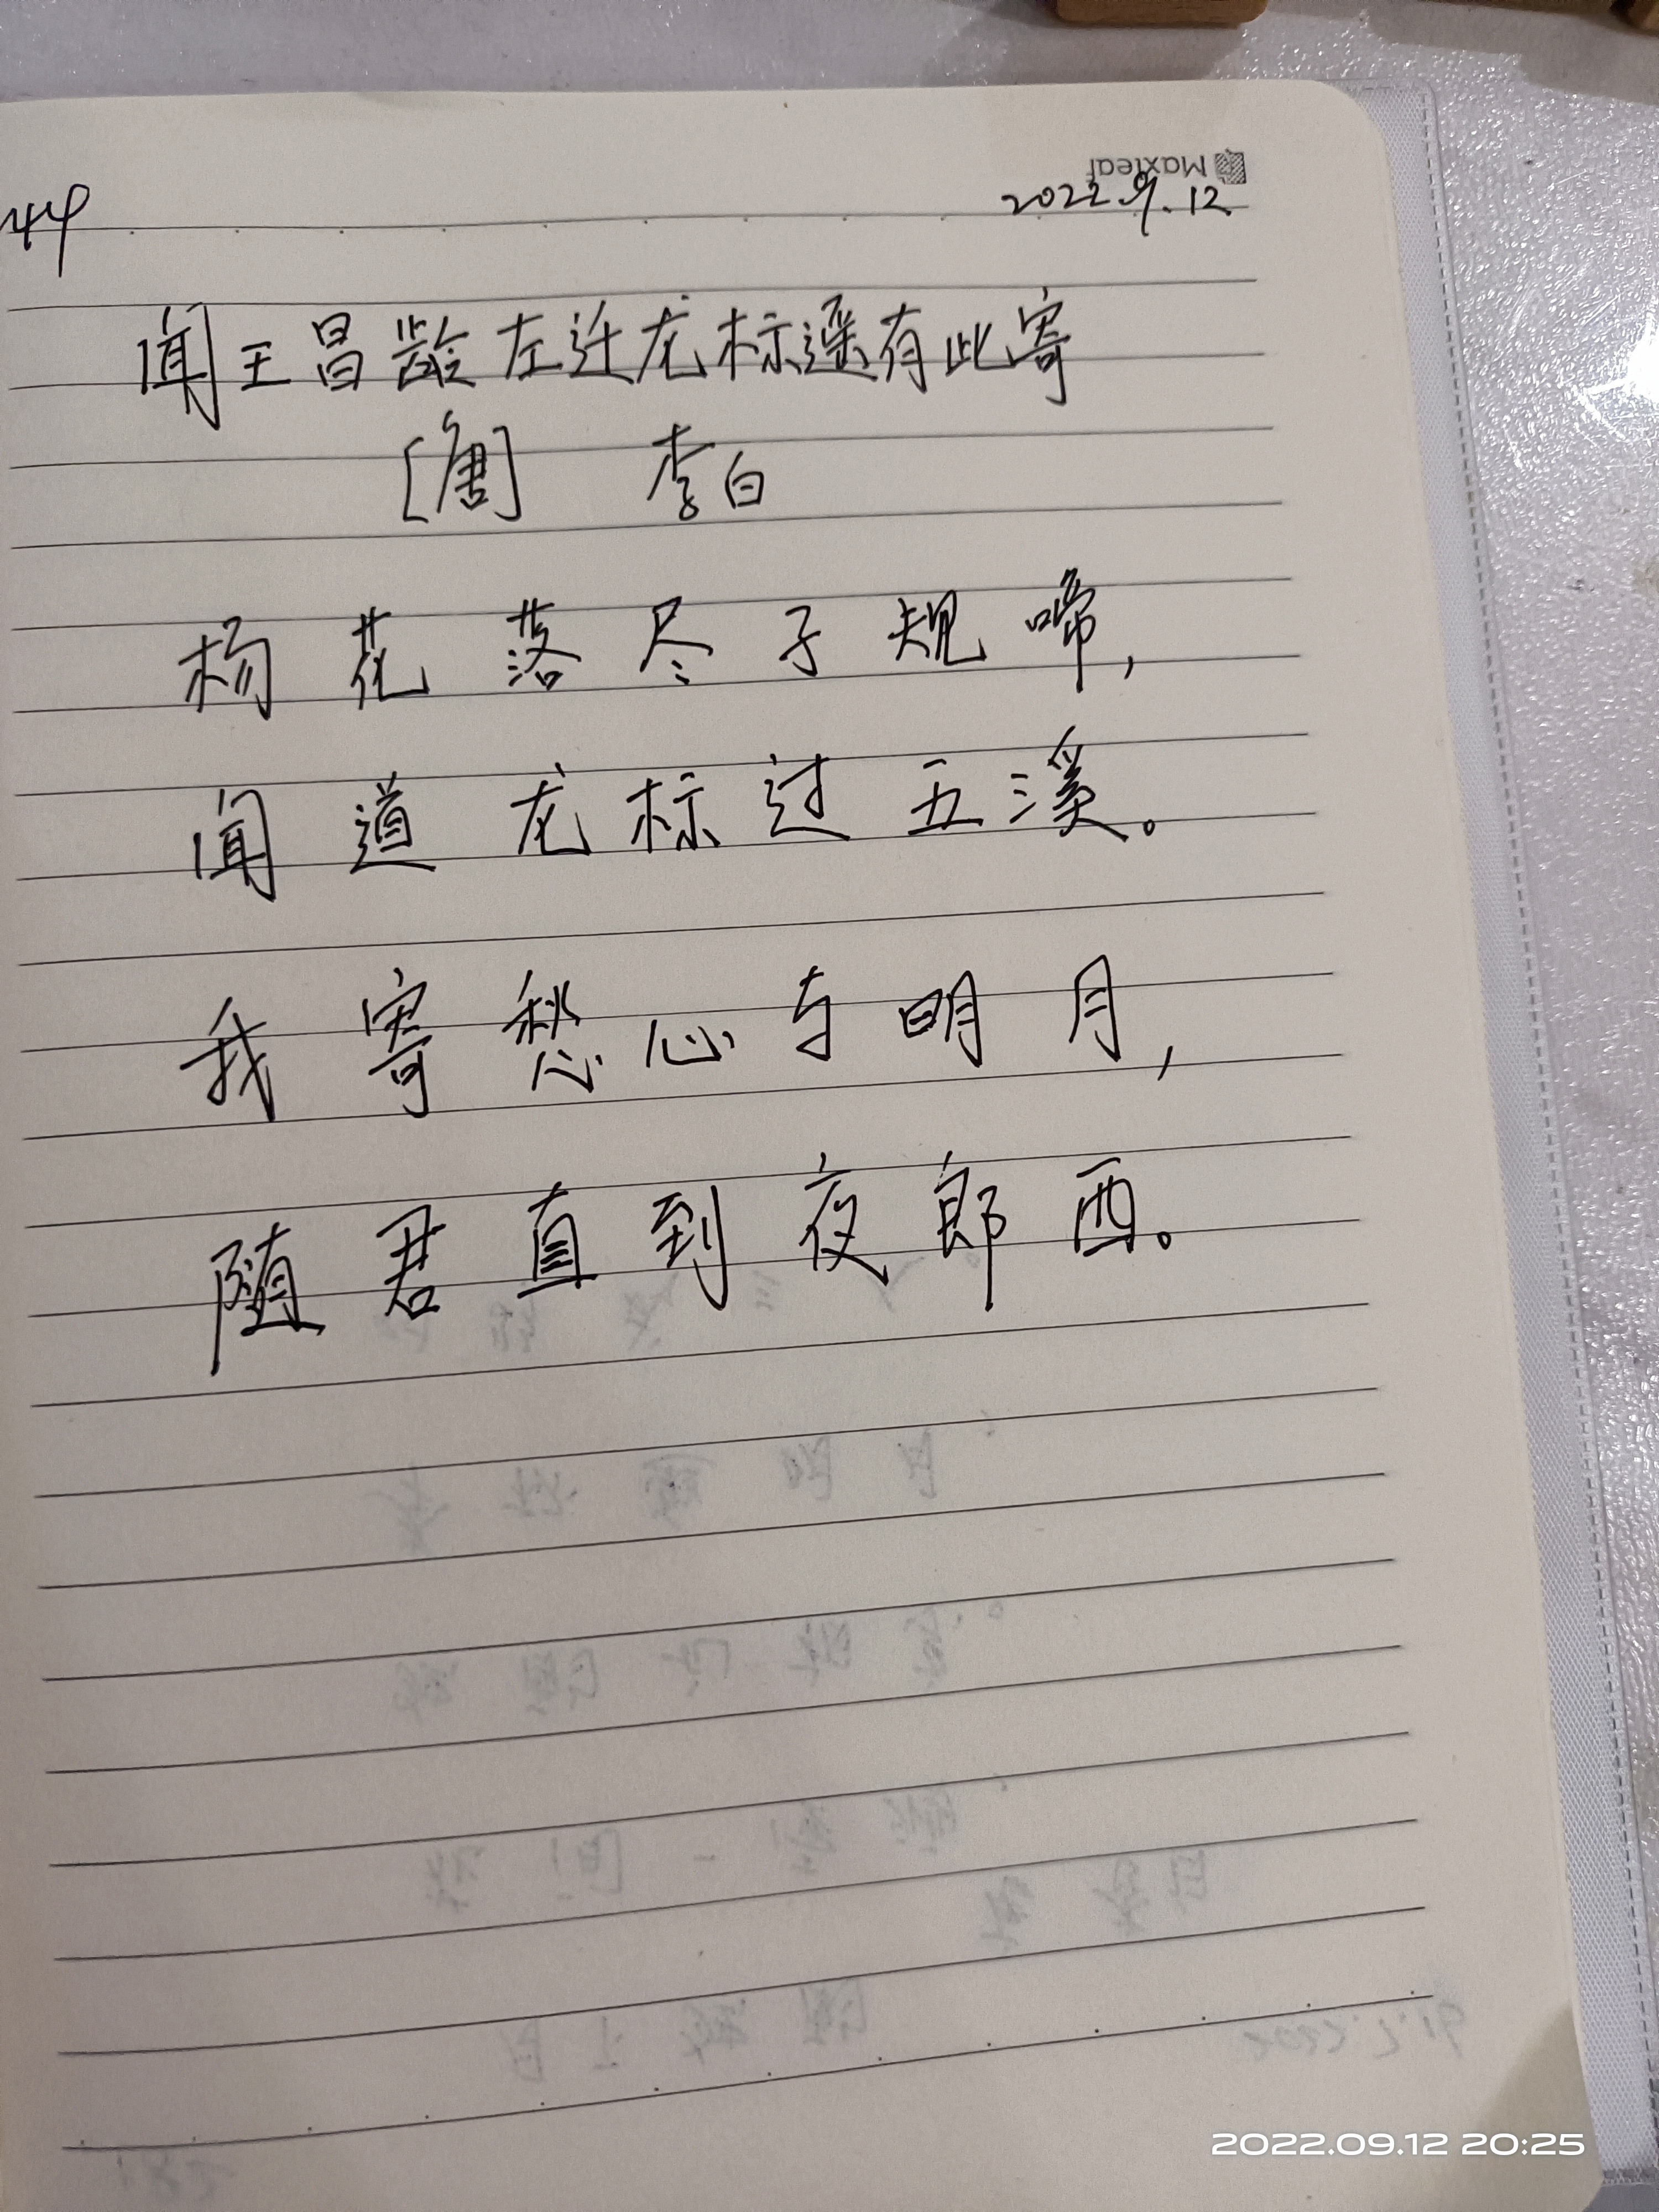 Maxleaf
44 2022.9.12
闻王昌龄左迁龙标遥有此寄
[唐] 李白
杨花落尽子规啼,
闻道龙标过五溪。
我寄愁心与明月,
随君直到夜郎西。
2022.09.12 20:25